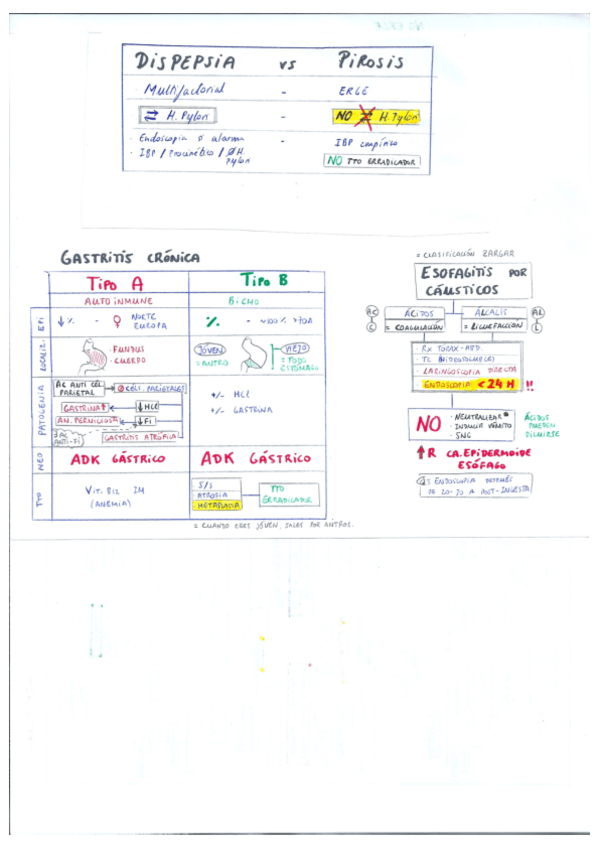 DISPEPSIA vs PIROSIS
Multifactorial - ERGE
⇄ H. Pylori - NO ⇄ H. Pylori
· Endoscopia si alarma - IBP empírico
· IBP / Procinético / Ø H. Pylori
NO TTO ERRADICADOR
GASTRITIS CRÓNICA
TIPO A
TIPO B
AUTOINMUNE
BICHO
EPI
↓% - ♀ NORTE EUROPA
% - ~100% >70A
LOCALIZ.
· FUNDUS
· CUERPO
JÓVEN = ANTRO
VIEJO = TODO ESTÓMAGO
PATOGENIA
AC ANTI CÉL. PARIETAL
Ø CÉLS. PARIETALES
GASTRINA↑
↓HCl
AN. PERNICIOSA
↓Fi
AC ANTI-Fi
GASTRITIS ATRÓFICA
+/- HCl
+/- GASTRINA
NEO
ADK GÁSTRICO
ADK GÁSTRICO
TTO
VIT. B12 IM
(ANEMIA)
S/S
ATROFIA
METAPLASIA
TTO ERRADICADOR
= CUANDO ERES JÓVEN, SALES POR ANTROS.
= CLASIFICACIÓN ZARGAR
ESOFAGITIS POR
CÁUSTICOS
AC
C
ÁCIDOS
= COAGULACIÓN
ÁLCALIS
= LICUEFACCIÓN
AL
L
· RX TORAX-ABD
· LARINGOSCOPIA DIRECTA
· ENDOSCOPIA <24H !!
NO
· NEUTRALIZAR
· INDUCIR VÓMITO
· SNG
ÁCIDOS
PUEDEN
DILUIRSE
↑R CA. EPIDERMOIDE
ESÓFAGO
ENDOSCOPIA DESPUÉS
DE 20-30 A POST-INGESTA